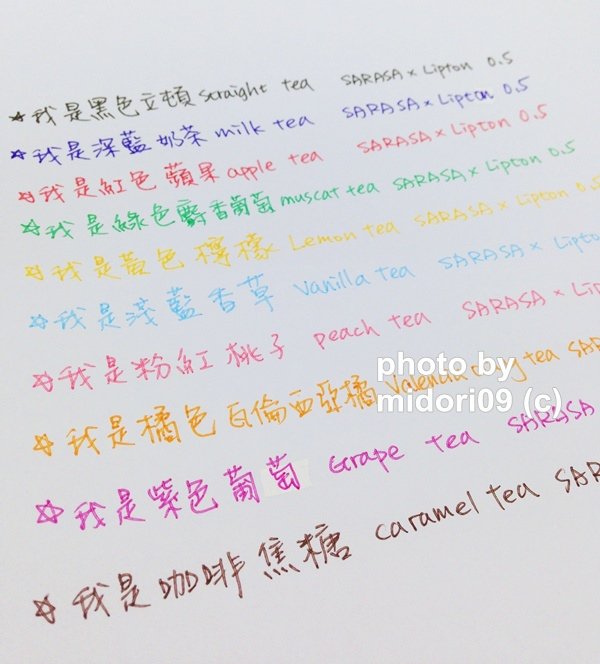 ☆我是黑色立頓 straight tea SARASA x Lipton 0.5
☆我是深藍奶茶 milk tea SARASA x Lipton 0.5
☆我是紅色蘋果 apple tea SARASA x Lipton 0.5
☆我是綠色麝香葡萄 muscat tea SARASA x Lipton 0.5
☆我是黃色檸檬 Lemon tea SARASA x Lipton 0.5
☆我是淺藍香草 Vanilla tea SARASA x Lipto
☆我是粉紅桃子 peach tea SARASA x Li
☆我是橘色瓦倫西亞橘 Valencia tea SAR
☆我是紫色葡萄 Grape tea SARASA
☆我是咖啡焦糖 caramel tea SAR
photo by
midori09 (c)